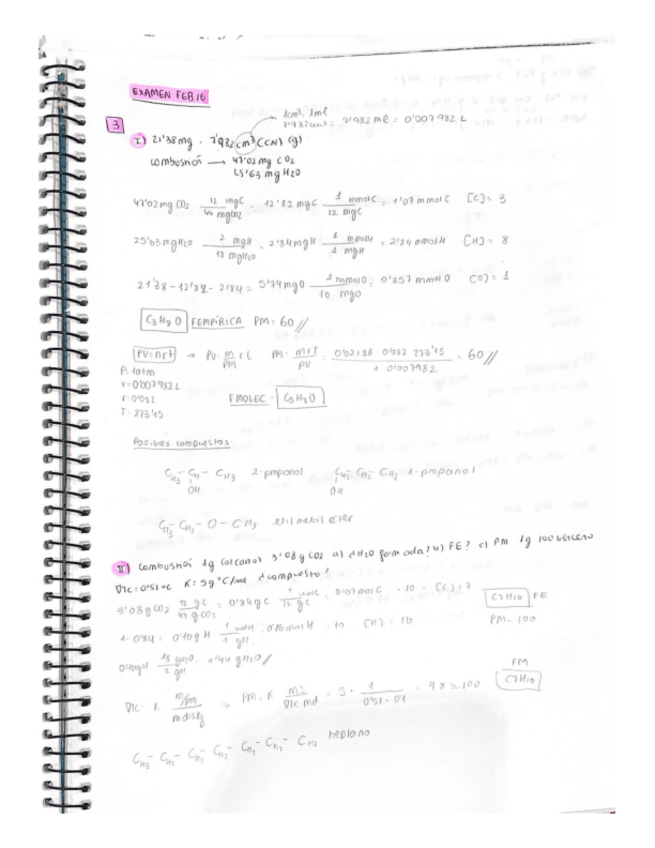 EXAMEN FEB 16
3
1cm³, 1ml
7'982cm³ = 7'982 ml = 0'007982 L
I) 21'38mg, 7'982 cm³ (CN) (g)
combustión → 47'02 mg CO2
25'63 mg H2O
47'02mg CO2 12 mgC / 44 mgCO2 = 12'82 mgC 1 mmolC / 12 mgC = 1'07 mmol C [C]= 3
25'63mgH2O 2 mgH / 18 mgH2O = 2'84mgH 1 mmolH / 1 mgH = 2'84 mmolH [H]= 8
21'38-12'82-2'84 = 5'74mgO 1 mmolO / 16 mgO = 0'357 mmol O [O]= 1
C3H8O FEMPÍRICA PM= 60//
PV=nrt → PV= m/PM rt PM= mrT/PV = 0'02138 0'082 273'15 / 1 0'007982 = 60//
P: 1atm
V=0'007982L
r=0'082
T= 273'15
FMOLEC = C3H8O
Posibles compuestos
CH3-CH-CH3 2-propanol CH2-CH2-CH3 1-propanol
OH OH
CH3-CH2-O-CH3 etil metil éter
II) combustión 1g (alcano) 3'08g CO2 a) ¿H2O formada? b) FE? c) PM 1g 100 benceno
∇Tc=0'51ºC K=5gºC/ ¿compuesto?
3'08gCO2 12 gC / 44 gCO2 = 0'84gC 1 molC / 12 gC = 0'07molC · 10 = [C]=7
C7H16 FE
1-0'84= 0'16g H 1 molH / 1 gH 0'16 molH · 10 [H]= 16
PM= 100
0'16gH 18 gH2O / 2 gH = 1'44 gH2O//
∇Tc= K m/pm / mdiste → PM= K ms / ∇Tc md = 5 · 1 / 0'51·0'1 = 98≈100
FM
C7H16
CH3-CH2-CH2-CH2-CH2-CH2-CH3 heptano